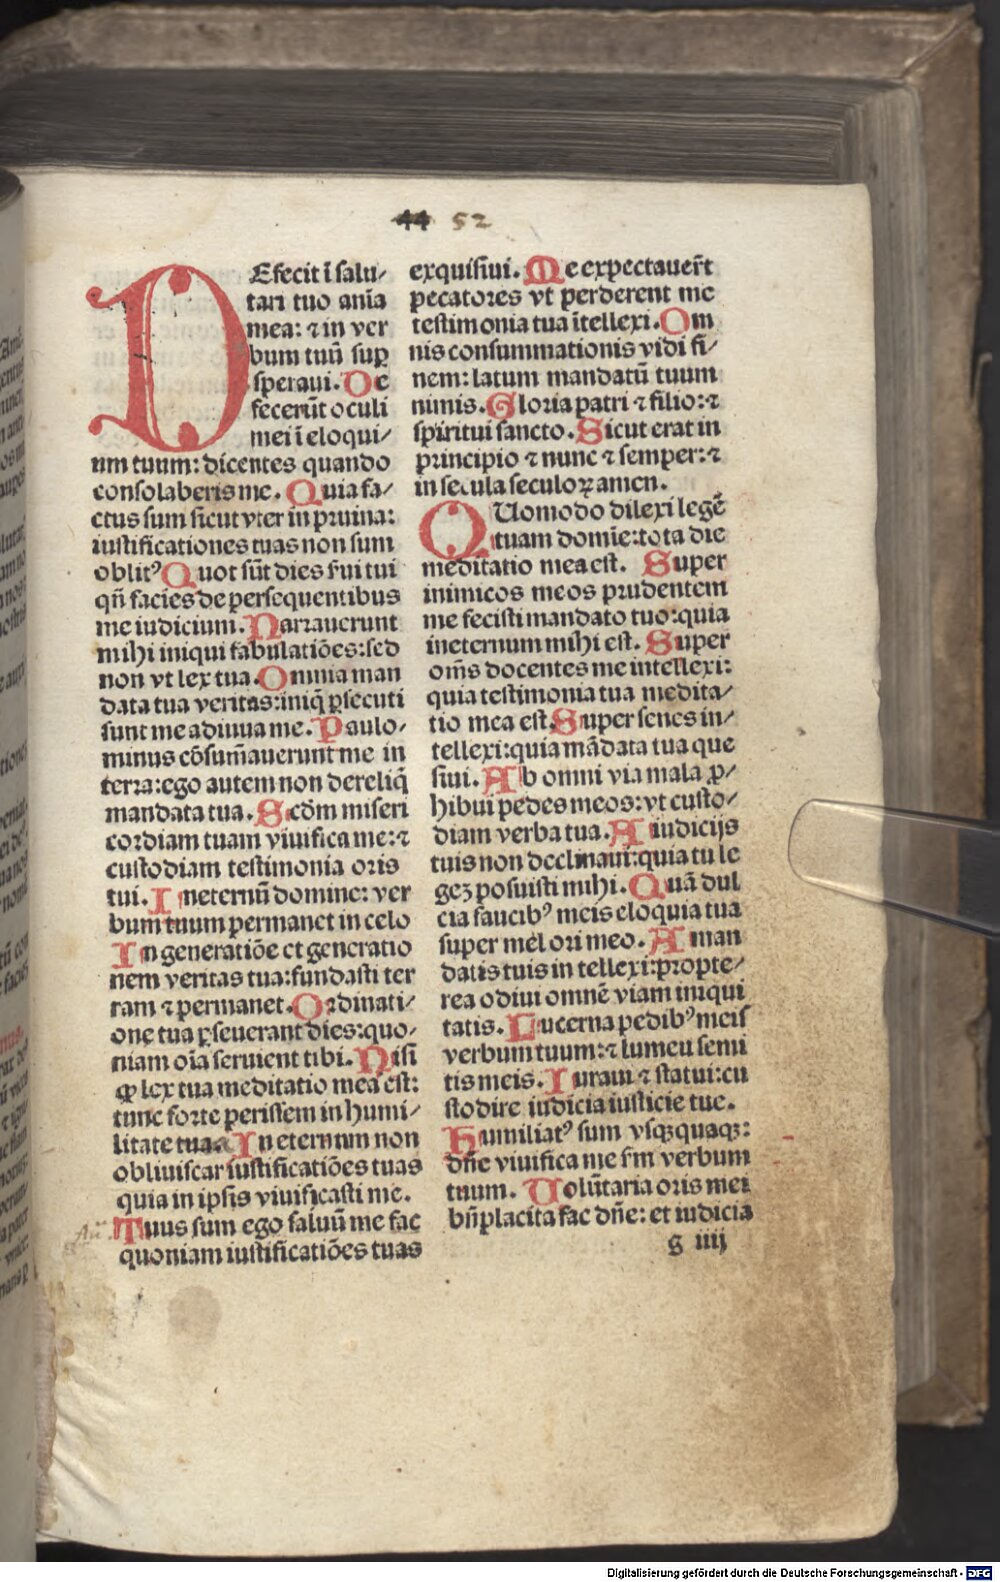 44 52
DEfecit ī salu/
tari tuo anīa
mea: ⁊ in ver
bum tuū suꝑ
speraui. De
fecerūt oculi
mei ī eloqui/
um tuum: dicentes quando
consolaberis me. Quia fa/
ctus sum sicut vter in pruina:
iustificationes tuas non sum
oblitꝰ Quot sūt dies serui tui
qn̄ facies de persequentibus
me iudicium. Narrauerunt
mihi iniqui fabulatiões: sed
non vt lex tua. Omnia man
data tua veritas: iniq̄ ꝑsecuti
sunt me adiuua me. Paulo/
minus cōsūmauerunt me in
terra: ego autem non dereliq̄
mandata tua. Scďm miseri
cordiam tuam viuifica me: ⁊
custodiam testimonia oris
tui. In eternū domine: ver
bum tuum permanet in celo
In generatiōe et generatio
nem veritas tua: fundasti ter
ram ⁊ permanet. Ordinati/
one tua ꝑseuerant dies: quo/
niam oīa seruient tibi. Nisi
ꝙ lex tua meditatio mea est:
tunc forte perissem in humi/
litate tua. In eternum non
obliuiscar iustificatiões tuas
quia in ipsis viuificasti me.
Añ. Tuus sum ego saluū me fac
quoniam iustificatiões tuas
exquisiui. Me expectauer̄t
pecatores vt perderent me
testimonia tua ītellexi. Om
nis consummationis vidi fi/
nem: latum mandatū tuum
nimis. Gloria patri ⁊ filio: ⁊
spiritui sancto. Sicut erat in
principio ⁊ nunc ⁊ semper: ⁊
in secula seculoꝝ amen.
QUomodo dilexi legē
tuam domīe: tota die
meditatio mea est. Super
inimicos meos prudentem
me fecisti mandato tuo: quia
in eternum mihi est. Super
om̄s docentes me intellexi:
quia testimonia tua medita/
tio mea est. Super senes in/
tellexi: quia mādata tua que
siui. Ab omni via mala ꝓ/
hibui pedes meos: vt custo/
diam verba tua. A iudicijs
tuis non declinaui: quia tu le
geꝫ posuisti mihi. Quā dul
cia faucibꝰ meis eloquia tua
super mel ori meo. A man
datis tuis in tellexi: propte/
rea odiui omnē viam iniqui
tatis. Lucerna pedibꝰ meis
verbum tuum: ⁊ lumeu semi
tis meis. Iuraui ⁊ statui: cu
stodire iudicia iusticie tue.
Humiliatꝰ sum vsqꝫquaqꝫ:
dn̄e viuifica me sm̄ verbum
tuum. Uolūtaria oris mei
bn̄placita fac dn̄e: et iudicia
g iiij
Digitalisierung gefördert durch die Deutsche Forschungsgemeinschaft - DFG